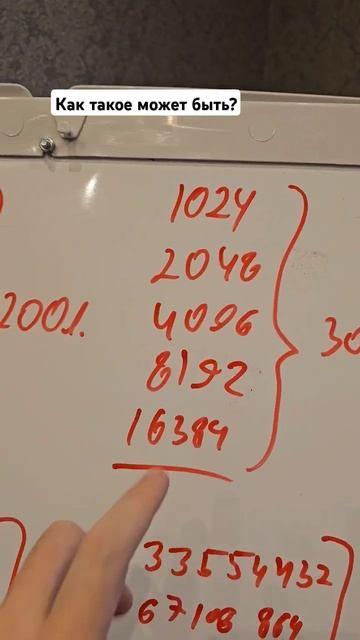 Как такое может быть?
1024
2048
4096
2001.
8192
30
16384
33554432
67108864